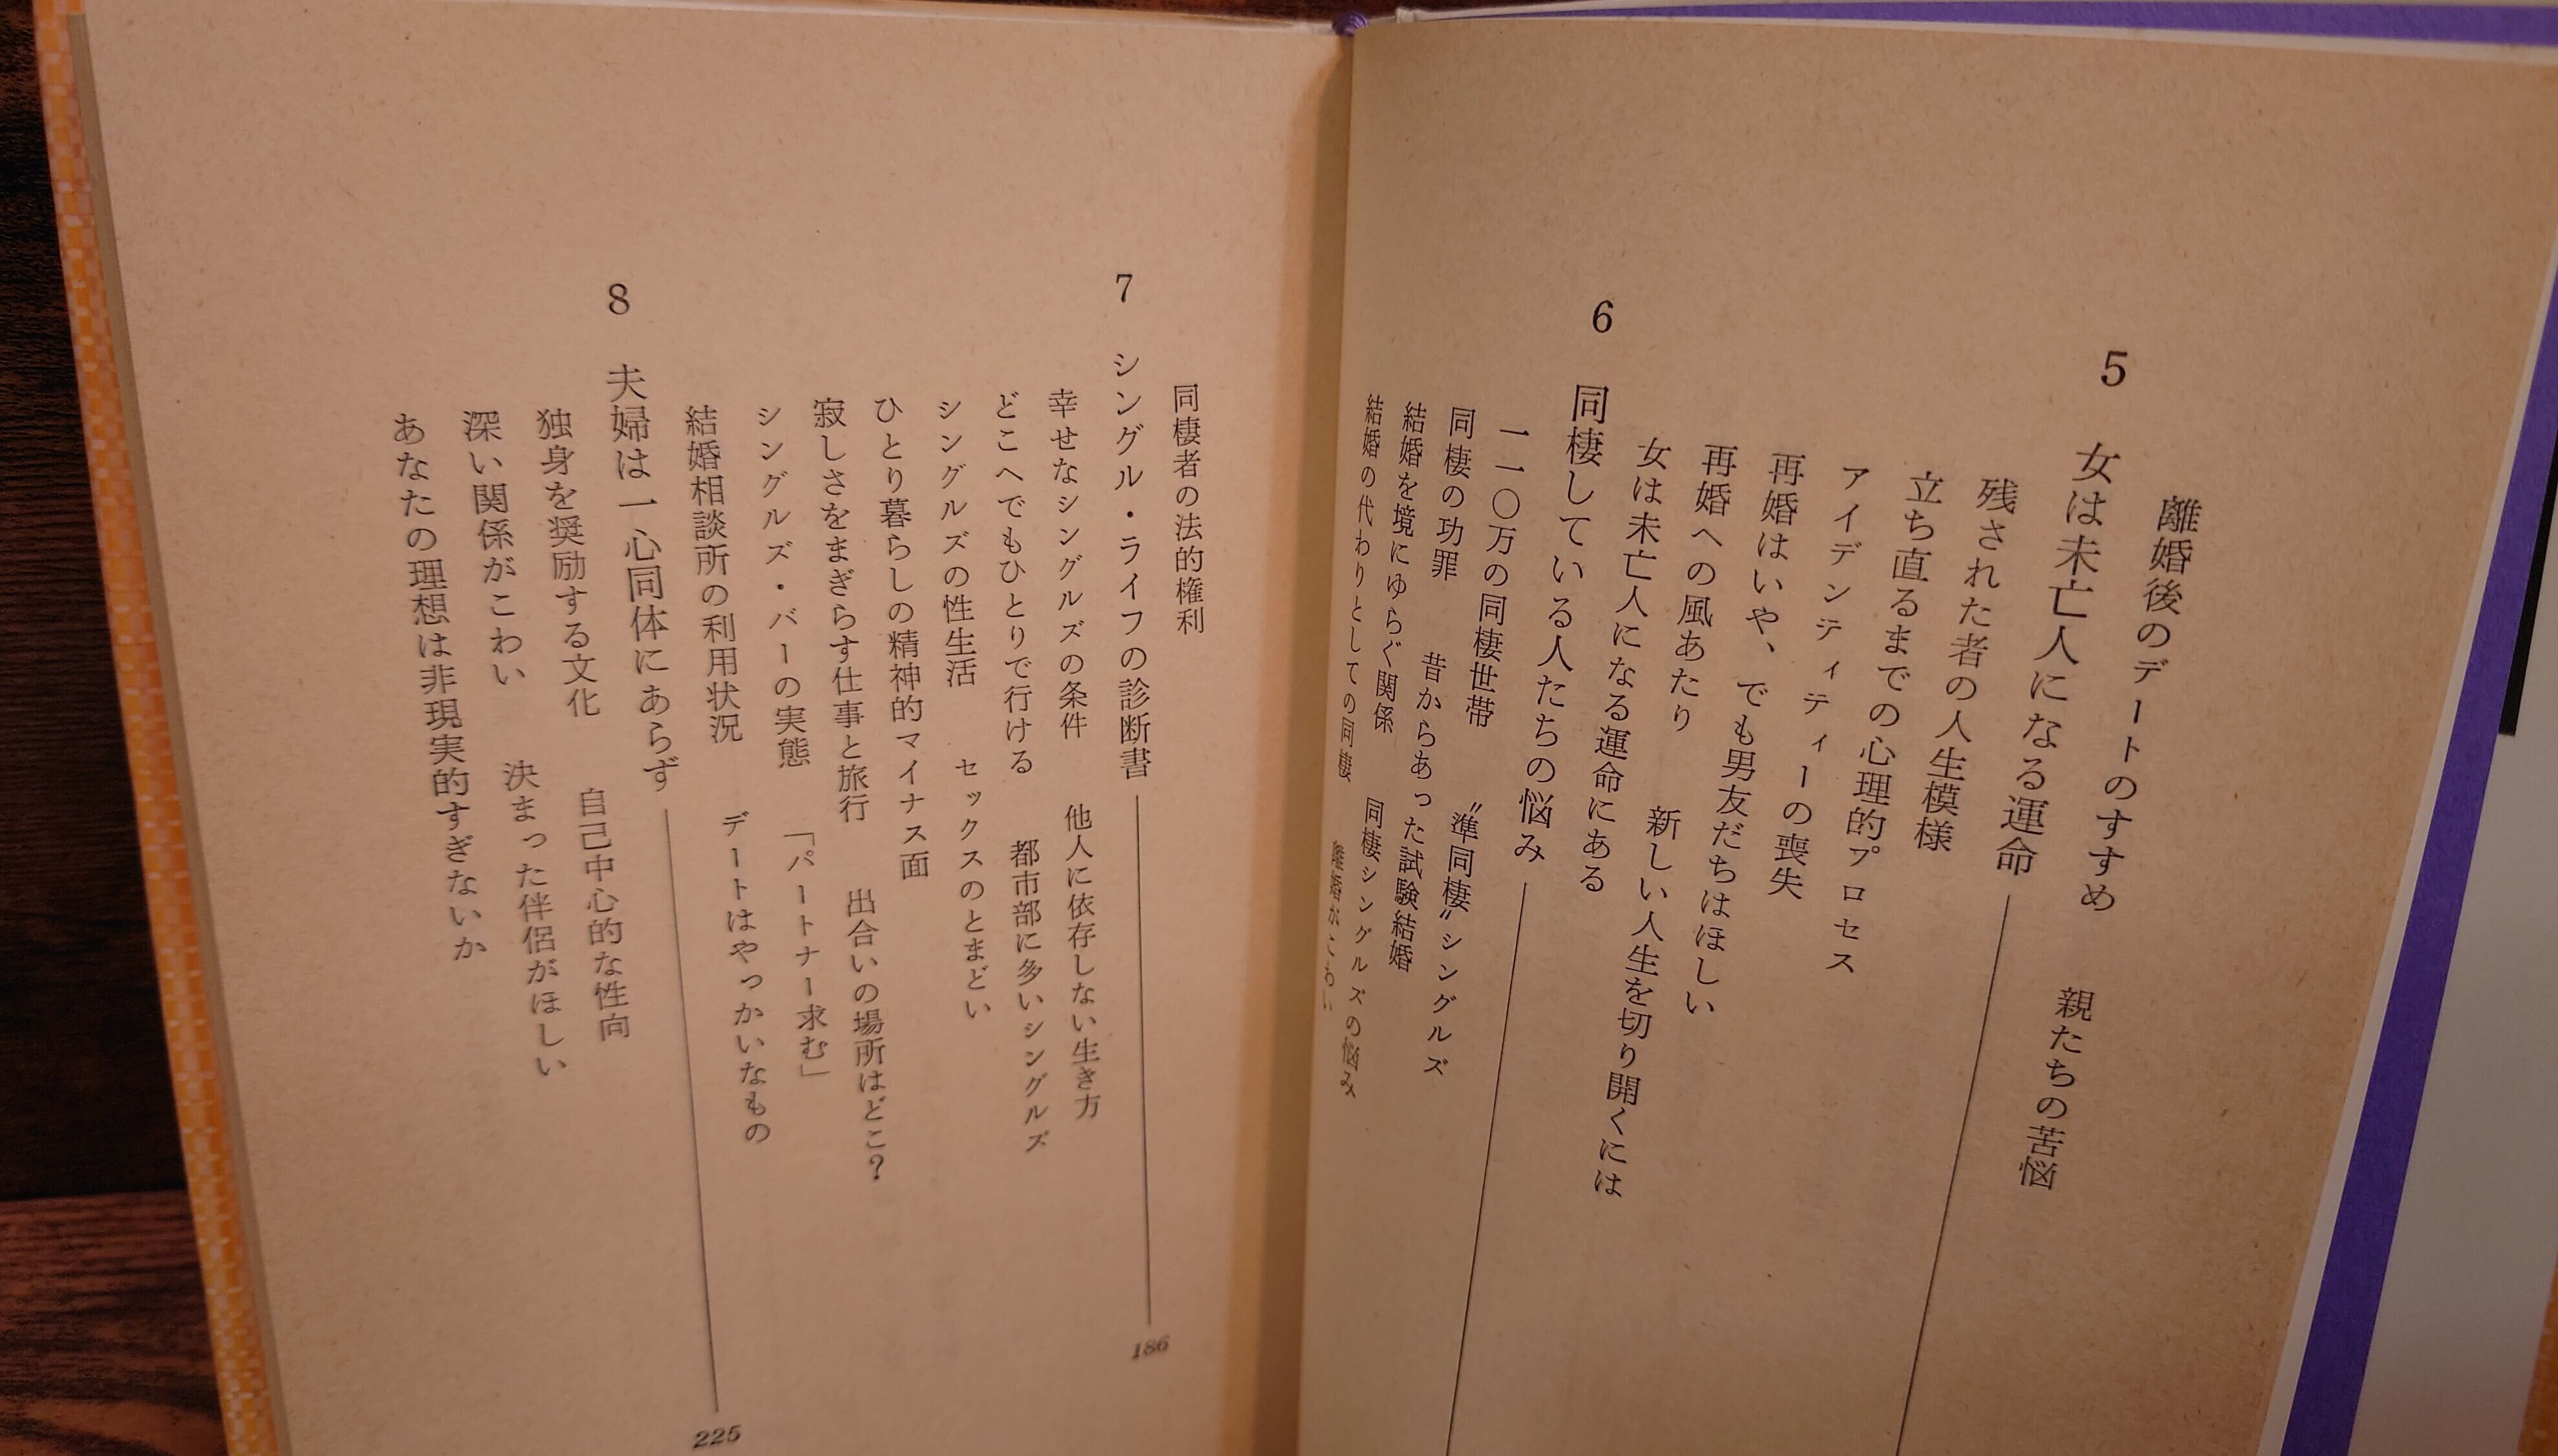 離婚後のデートのすすめ　親たちの苦悩
5　女は未亡人になる運命
残された者の人生模様
立ち直るまでの心理的プロセス
アイデンティティーの喪失
再婚はいや、でも男友だちはほしい
再婚への風あたり　新しい人生を切り開くには
女は未亡人になる運命にある
6　同棲している人たちの悩み
一一〇万の同棲世帯　〝準同棲〟シングルズ
同棲の功罪　昔からあった試験結婚
結婚を境にゆらぐ関係　同棲シングルズの悩み
結婚の代わりとしての同棲　離婚がこわい
同棲者の法的権利
7　シングル・ライフの診断書　186
幸せなシングルズの条件　他人に依存しない生き方
どこへでもひとりで行ける　都市部に多いシングルズ
シングルズの性生活　セックスのとまどい
ひとり暮らしの精神的マイナス面
寂しさをまぎらす仕事と旅行　出合いの場所はどこ？
シングルズ・バーの実態　「パートナー求む」
結婚相談所の利用状況　デートはやっかいなもの
8　夫婦は一心同体にあらず　225
独身を奨励する文化　自己中心的な性向
深い関係がこわい　決まった伴侶がほしい
あなたの理想は非現実的すぎないか